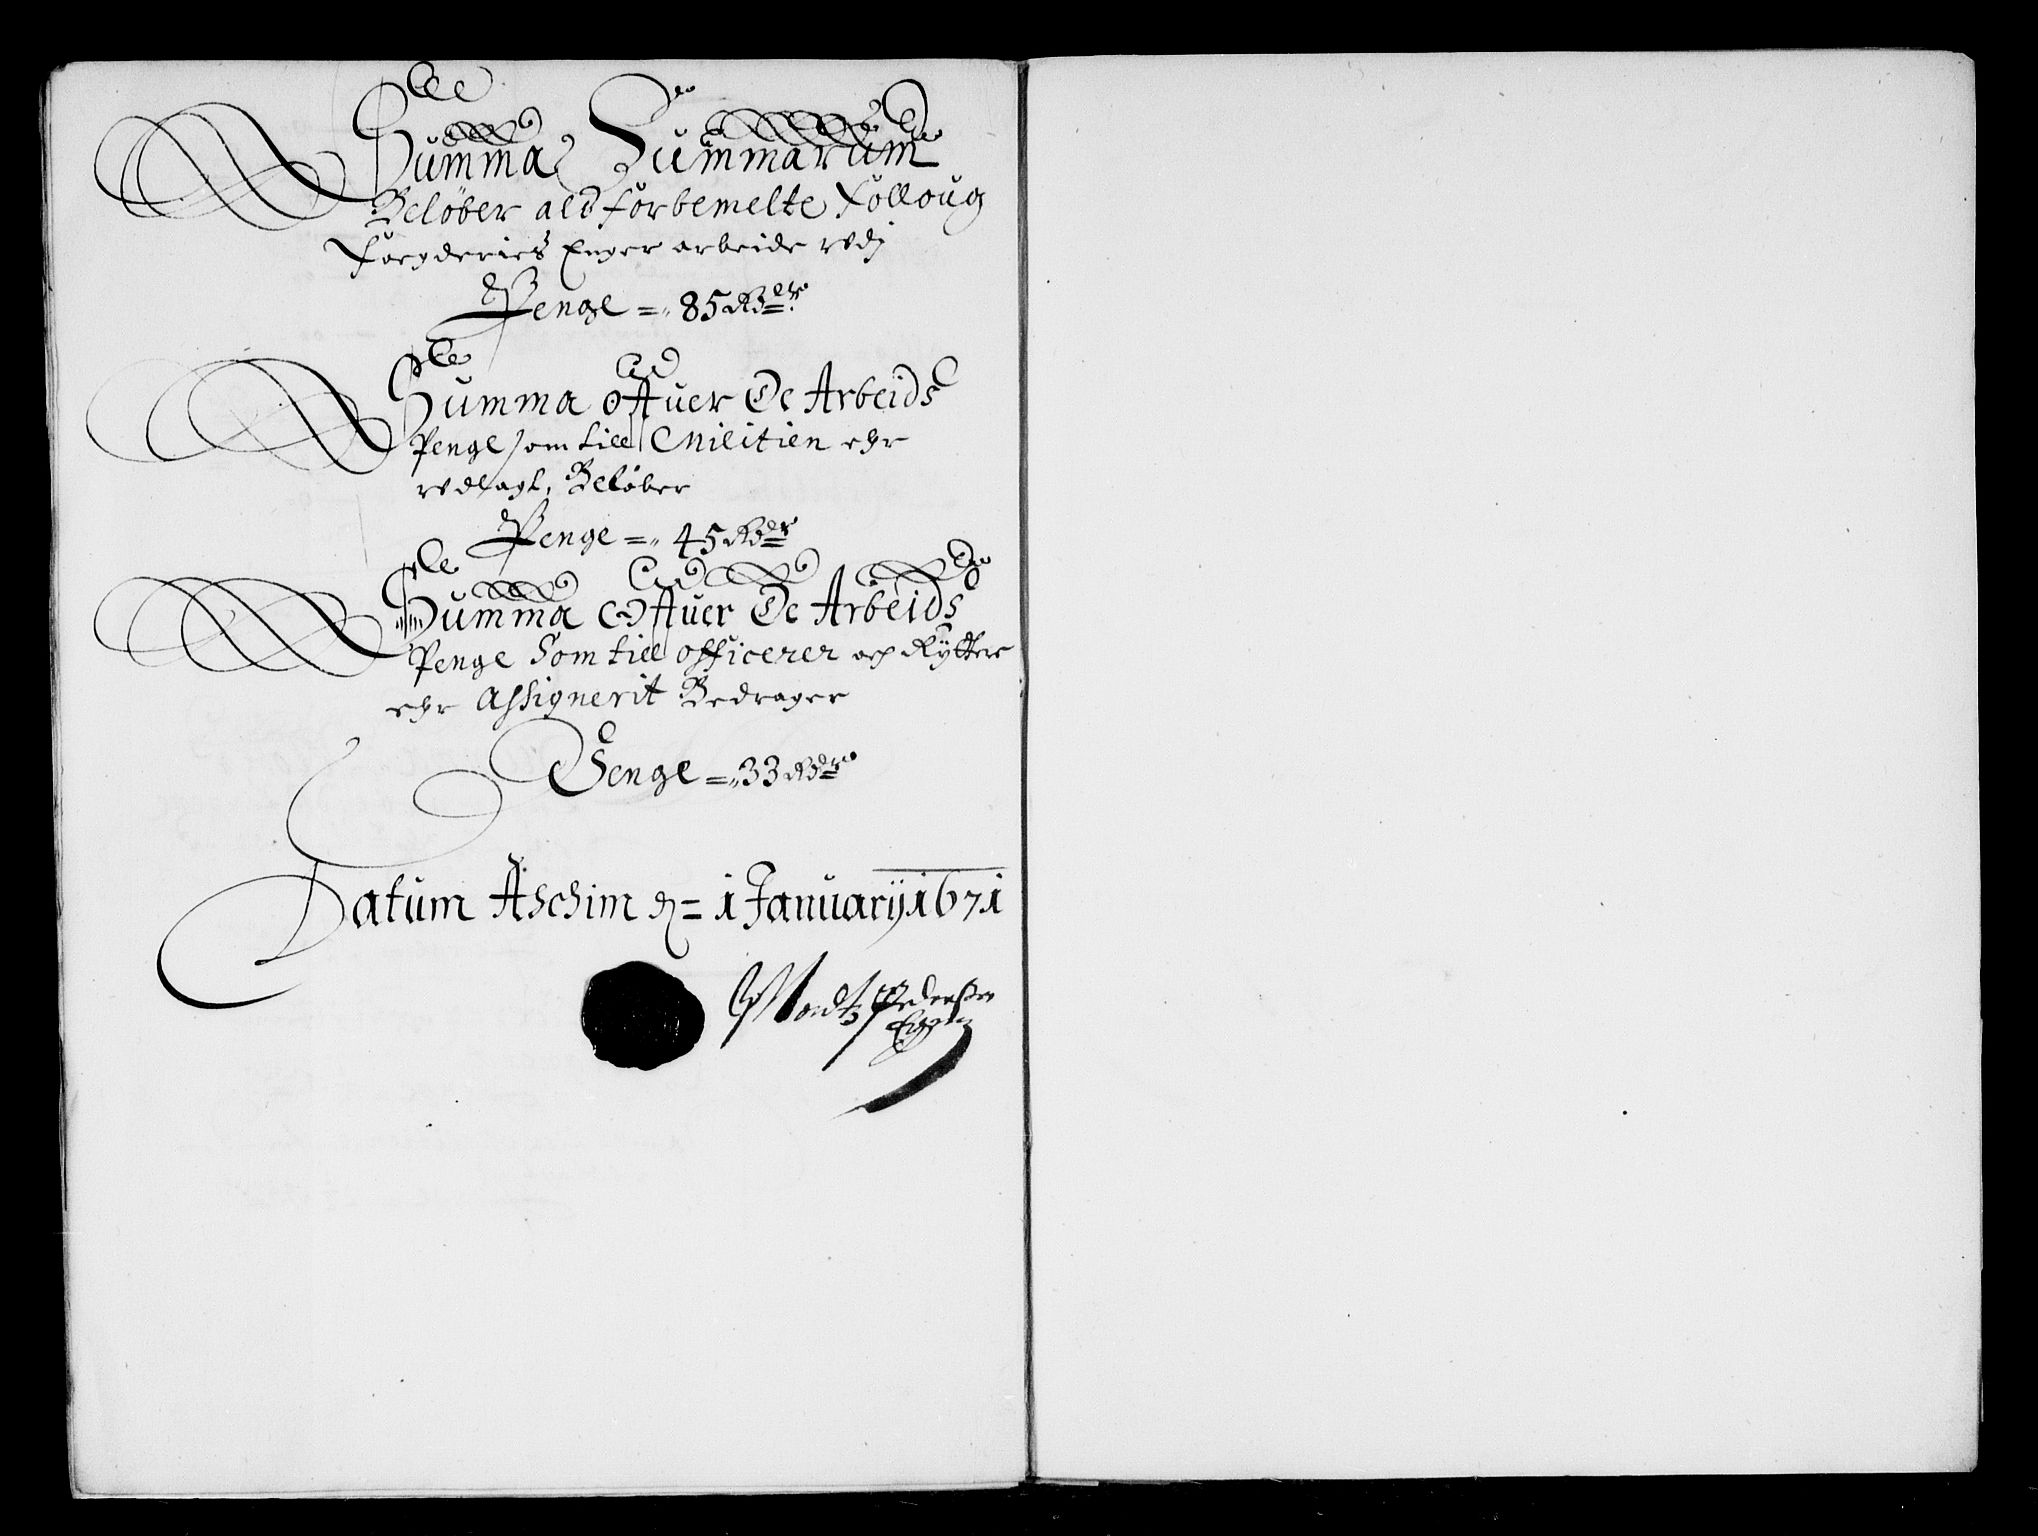 Summa Summarum
Beløber ald forbemelte Folloug
Foegderies Enger arbeide udj
Penge =„ 85 Rdr
Summa offuer De Arbeids
Penge som till Militien ehr
udlagt, Beløber
Penge =„ 45 Rdr
Summa Offuer De Arbeids
Penge Som till officerer och Rytter
ehr Assignerit Bedrager
Penge =„ 33 Rdr
Datum Aschim d = 1 Januarij 1671
Pedersen